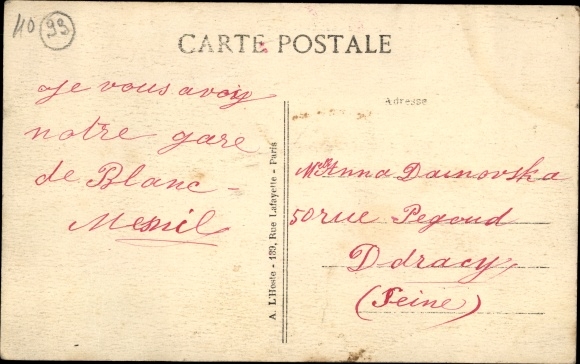 40 99
CARTE POSTALE
Je vous avoiy
notre gare
de Blanc-
Mesnil
A. L'Hoste - 139, Rue Lafayette - Paris
Adresse
Melle Anna Dainovska
50 rue Pegoud
Ddracy
(Seine)